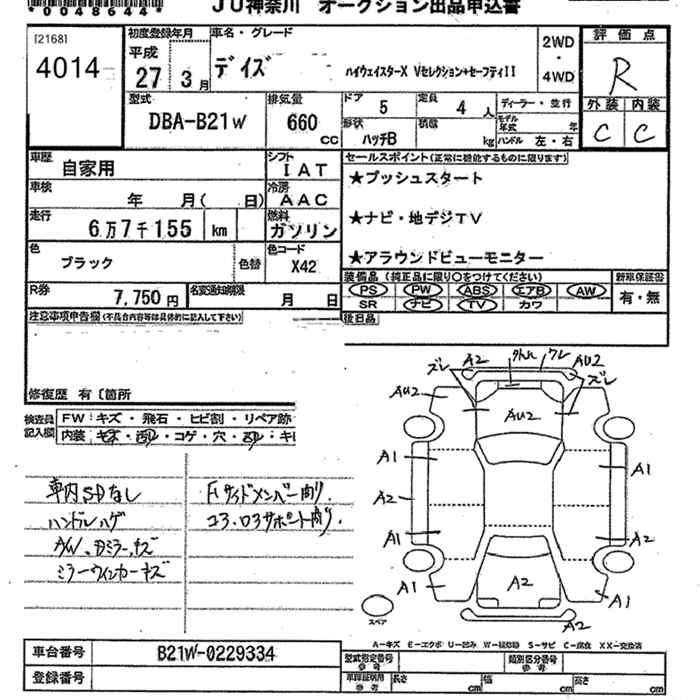 *0048644*
JU神奈川 オークション出品申込書
[2168]
4014
初度登録年月
平成
27年 3月
車名・グレード
デイズ
ハイウェイスターX Vセレクション+セーフティII
2WD
・
4WD
評価点
R
外装 内装
C C
型式
DBA-B21W
排気量
660 cc
ドア 5
定員 4 人
形状 ハッチB
積載 kg
ディーラー・並行
モデル年式 年
ハンドル 左・右
車歴 自家用
シフト IAT
車検 年 月( 日)
冷房 AAC
走行 6万7千155 km
燃料 ガソリン
色 ブラック
色替
色コード X42
R券 7,750円
名変通知期限 月 日
セールスポイント(正常に機能するものに限ります)
★プッシュスタート
★ナビ・地デジTV
★アラウンドビューモニター
装備品(純正品に限り○をつけてください)
PS PW ABS エアB AW
SR ナビ TV カワ
新車保証書
有・無
後日品
注意事項申告欄(不具合内容等は具体的に記入して下さい)
修復歴 有〔箇所
検査員記入欄
FW:キズ・飛石・ヒビ割・リペア跡
内装:キズ・汚レ・コゲ・穴・
車内SDなし
ハンドルハゲ
A/W、ドアミラーキズ
ミラーウィンカーキズ
Fサイドメンバー曲り
コアサポート曲り
ズレ A2 ワレ AU2
ズレ
AU2
AU2
A1
A1
A2
A1
A2
A1
A2
A1
A2
スペア
A-キズ E-エクボ U-凹み W-補修跡 S-サビ C-腐食 XX-交換済
車台番号 B21W-0229334
登録番号
型式指定番号参考
類別区分番号参考
車庫証明用参考
長さ cm
幅 cm
高さ cm